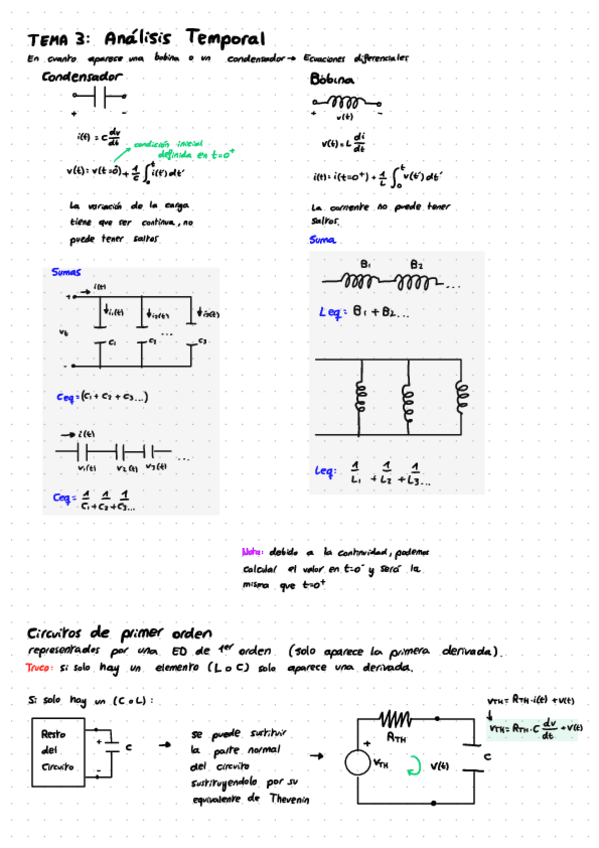 TEMA 3: Análisis Temporal
En cuanto aparece una bobina o un condensador → Ecuaciones diferenciales
Condensador
+ -
i(t) = C dv/dt
condición inicial
definida en t=0⁺
v(t) = v(t=0) + 1/C ∫₀ᵗ i(t') dt'
La variación de la carga
tiene que ser continua, no
puede tener saltos
Sumas
i(t)
+
i₁(t) i₂(t) i₃(t)
...
C₁ C₂ C₃
-
Ceq = (C₁ + C₂ + C₃...)
i(t)
...
v₁(t) v₂(t) v₃(t)
Ceq = 1/C₁ + 1/C₂ + 1/C₃...
Bobina
+ -
v(t)
v(t) = L di/dt
i(t) = i(t=0⁺) + 1/L ∫₀ᵗ v(t') dt'
La corriente no puede tener
saltos.
Suma
B₁ B₂
...
Leq = B₁ + B₂...
Leq: 1/L₁ + 1/L₂ + 1/L₃...
Nota: debido a la continuidad, podemos
calcular el valor en t=0⁻ y será la
misma que t=0⁺
Circuitos de primer orden
representados por una ED de 1er orden (solo aparece la primera derivada).
Truco: si solo hay un elemento (L o C) solo aparece una derivada.
Si solo hay un (C o L):
Resto
del
Circuito
+
-
C
→
se puede sustituir
la parte normal
del circuito
sustituyendolo por su
equivalente de Thevenin
→
RTH
+
VTH
V(t)
C
VTH = RTH · i(t) + v(t)
↓
VTH = RTH · C dv/dt + v(t)